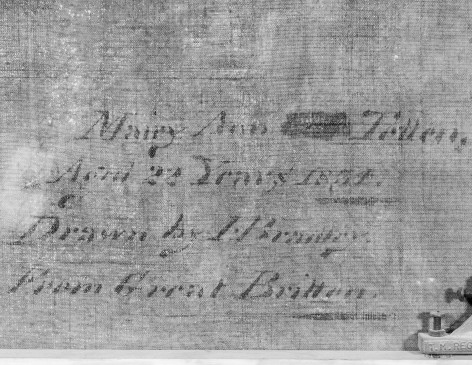 Mairy Ann Totten,
Aged 22 Years 1834.
Drawn by I Bradley.
From Great Britton.